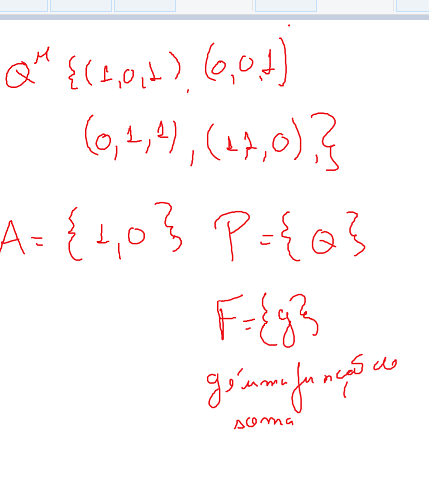 Q^M {(1,0,1), (0,0,1]
(0,1,1), (1,1,0),}
A = {1,0} P = {Q}
F = {g}
g é uma função de
soma